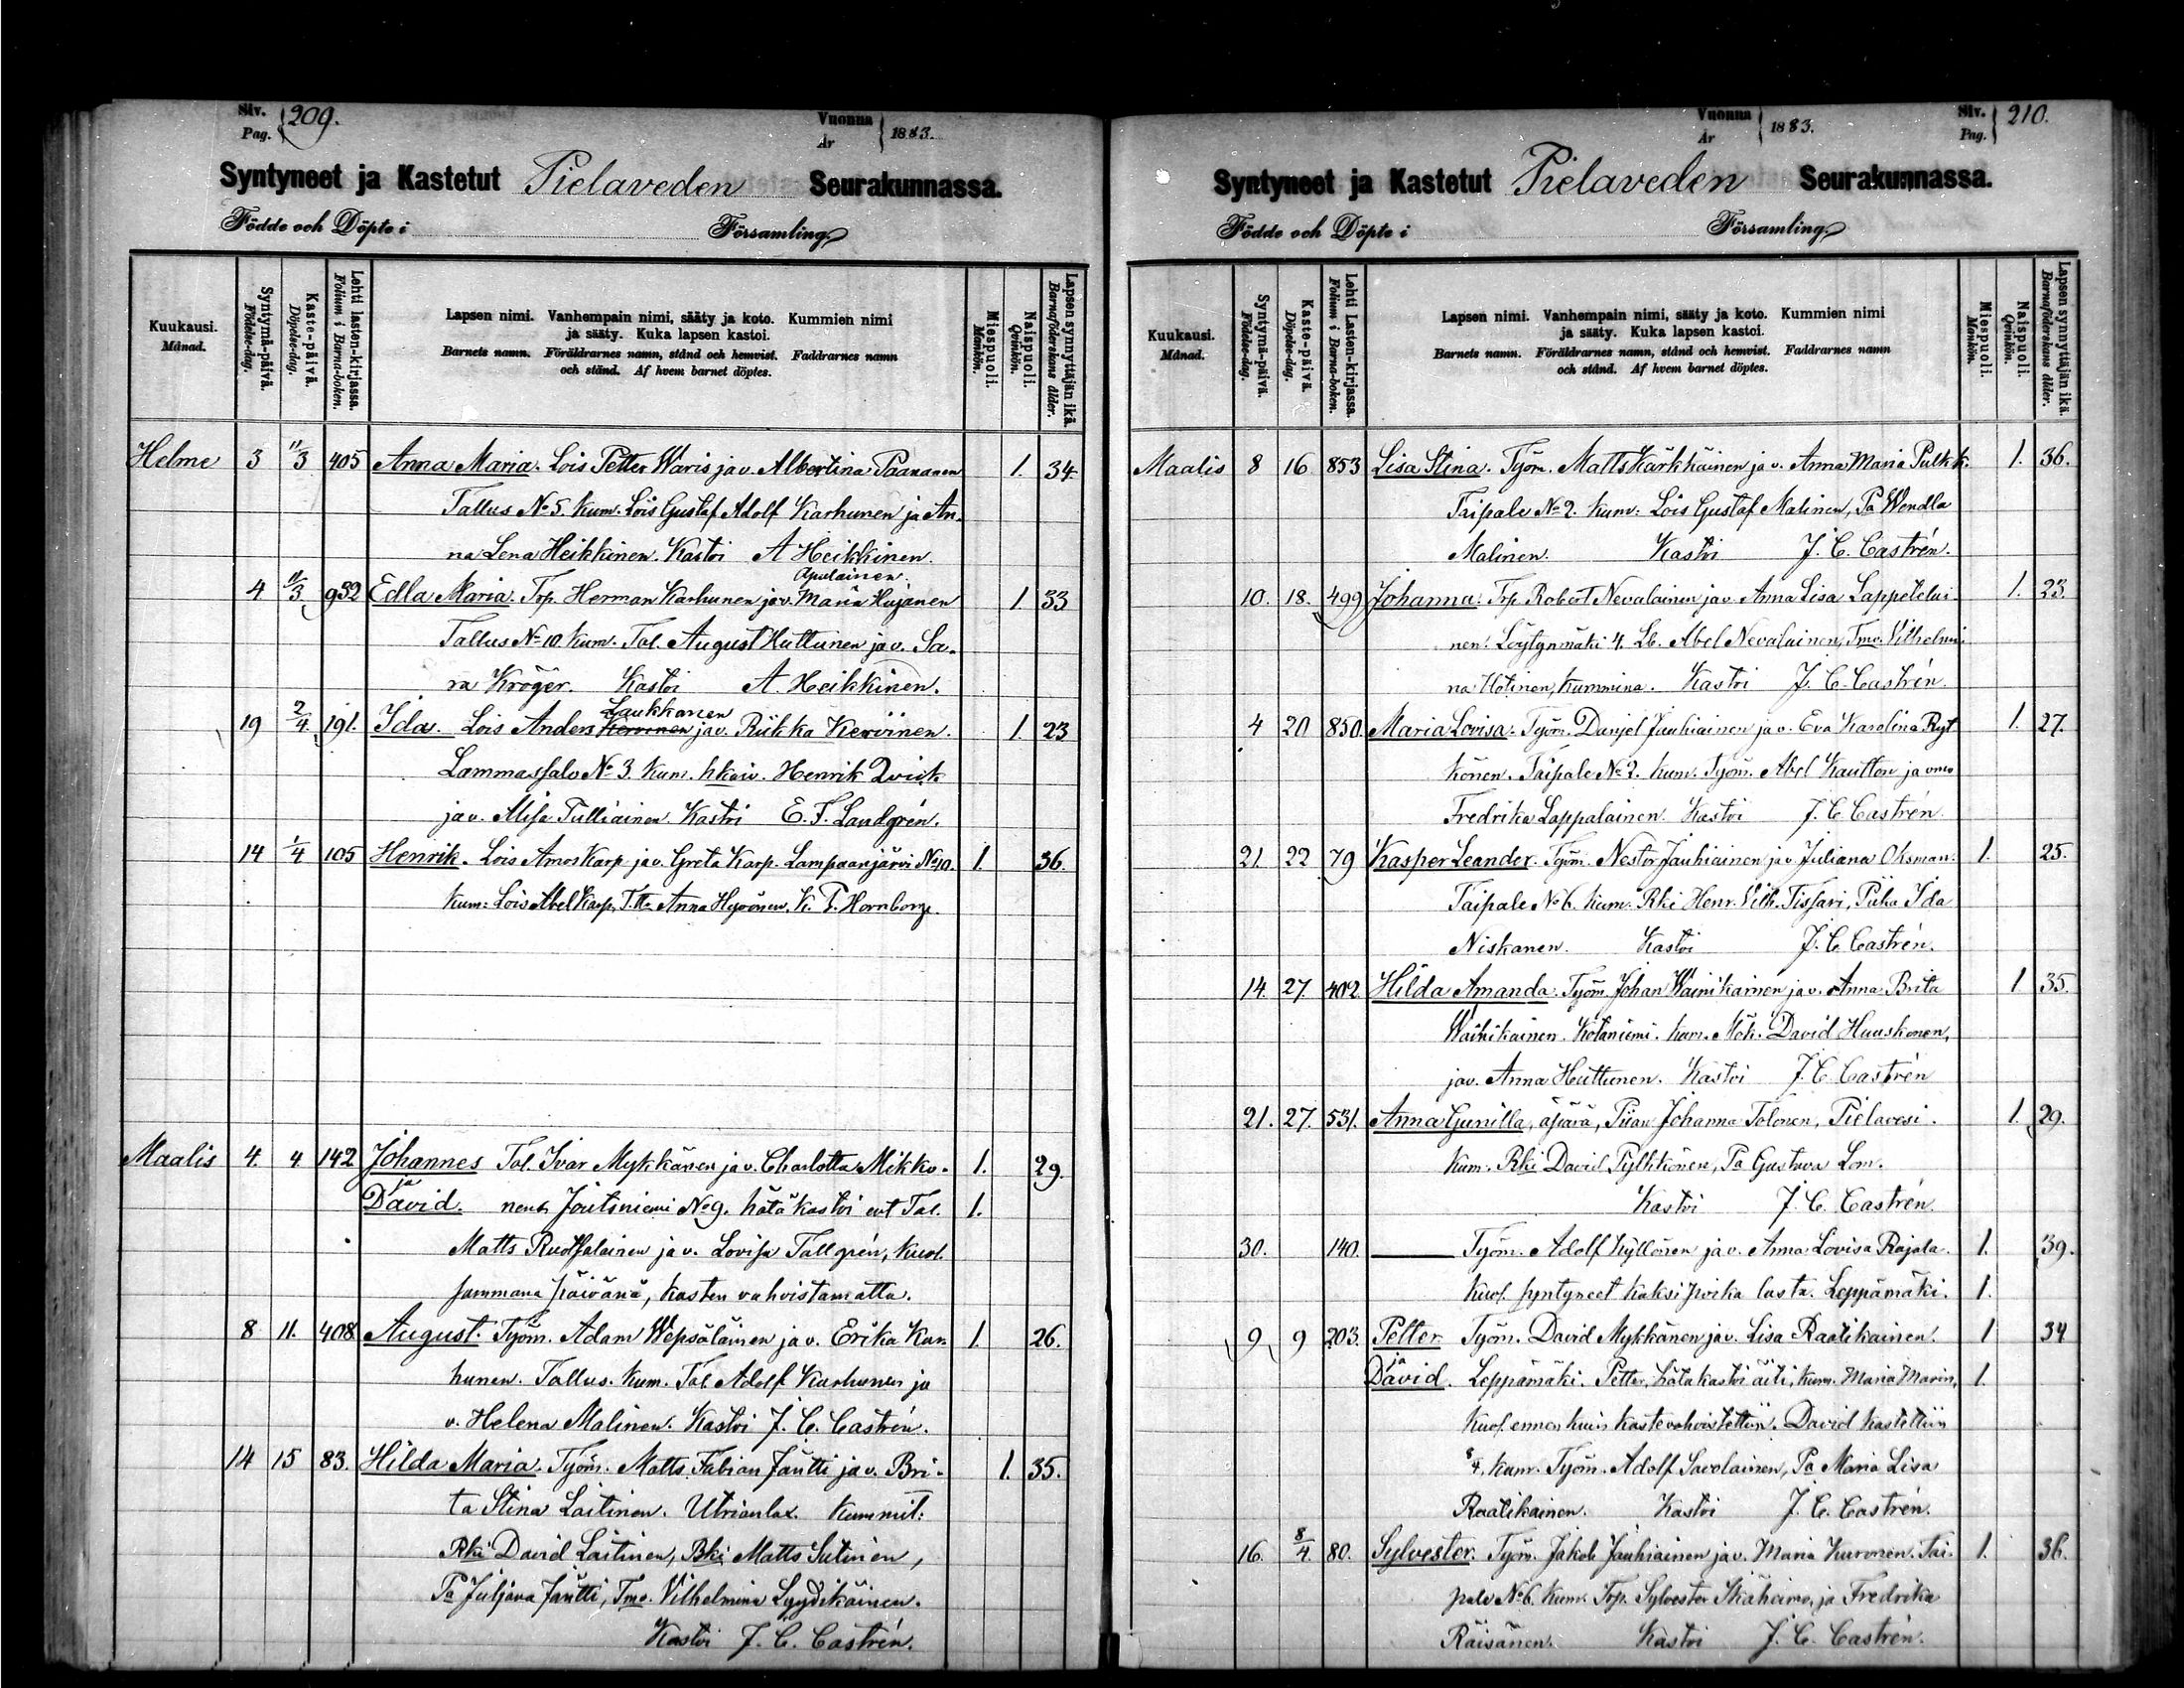 Siv. Pag. 209.
Vuonna År 1883.
Syntyneet ja Kastetut Pielaveden Seurakunnassa.
Födde och Döpte i Församling.
Kuukausi. Månad.
Syntymä-päivä. Födelse-dag.
Kaste-päivä. Döpelse-dag.
Lehti lasten-kirjassa. Folium i Barna-boken.
Lapsen nimi. Vanhempain nimi, sääty ja koto. Kummien nimi
ja sääty. Kuka lapsen kastoi.
Barnets namn. Föräldrarnes namn, stånd och hemvist. Faddrarnes namn
och stånd. Af hvem barnet döptes.
Miespuoli. Mankön.
Naispuoli. Qvinkön.
Lapsen synnyttäjän ikä. Barnaföderskans ålder.
Helme 3 11/3 405 Anna Maria. Lois Petter Waris ja v. Albertina Paananen 1. 34.
Tallus No 5. Kum. Lois Gustaf Adolf Karhunen ja An-
na Lena Heikkinen. Kastoi A Heikkinen.
Apulainen.
4 11/3 932 Edla Maria. Trp. Herman Karhunen ja v. Maria Hujanen 1 33
Tallus No 10 Kum. Tal. August Huttunen ja v. Sa-
ra Kröger. Kastoi A. Heikkinen.
Laukkanen
19 2/4 191. Ida. Lois Anders Kervinen ja v. Riikka Kervinen. 1. 23
Lammassalo No 3. Kum. hkaiv. Henrik Qvick
ja v. Miisa Tulliainen Kastoi E. F. Landgrén.
14 1/4 105 Henrik. Lois Amos Karp ja v. Greta Karp. Lampaanjärvi No 10. 1. 36.
Kum: Lois Abel Karp, T.tr Anna Hyvönen, K. T. Hornborg.
Maalis 4. 4 142 Johannes Tal. Ivar Mykkänen ja v. Charlotta Mikko- 1. 29.
ja
David. nen, Joutsniemi No 9. hätäkastoi ent Tal. 1.
Matts Ruotsalainen ja v. Lovisa Tallgrén, kuol.
sammana päivänä, kasten vahvistamatta.
8 11. 408 August. Työm. Adam Wepsäläinen ja v. Erika Kar- 1. 26.
hunen. Tallus. Kum. Tal. Adolf Karhunen ja
v. Helena Malinen. Kastoi J. C. Castrén.
14 15 83. Hilda Maria. Työm. Matts Fabian Jäntti ja v. Bri- 1. 35.
ta Stina Laitinen. Utrianlax. Kummit:
Rki David Laitinen, Rki Matts Sutinen,
Pa Juljana Jäntti, Tmo. Vilhelmina Lyydikäinen.
Kastoi J. C. Castrén.
Vuonna År 1883.
Siv. Pag. 210.
Syntyneet ja Kastetut Pielaveden Seurakunnassa.
Födde och Döpte i Församling.
Kuukausi. Månad.
Syntymä-päivä. Födelse-dag.
Kaste-päivä. Döpelse-dag.
Lehti Lasten-kirjassa. Folium i Barna-boken.
Lapsen nimi. Vanhempain nimi, sääty ja koto. Kummien nimi
ja sääty. Kuka lapsen kastoi.
Barnets namn. Föräldrarnes namn, stånd och hemvist. Faddrarnes namn
och stånd. Af hvem barnet döptes.
Miespuoli. Mankön.
Naispuoli. Qvinkön.
Lapsen synnyttäjän ikä. Barnaföderskans ålder.
Maalis 8 16 853 Lisa Stina. Työm. Matts Kärkkäinen ja v. Anna Maria Pulkk. 1. 36.
Taipale No 2. Kum. Lois Gustaf Malinen, Pa Wendla
Malinen. Kastoi J. C. Castrén.
10. 18. 499 Johanna. Trp. Robert Nevalainen ja v. Anna Lisa Lappetelai- 1. 23.
nen. Löytynmäki 4. Lb. Abel Nevalainen, Tmo. Vilhelmi-
na Hotinen, kummina. Kastoi J. C. Castrén.
4 20 850. Maria Lovisa. Työm. Danjel Jauhiainen ja v. Eva Karolina Ryt 1. 27.
könen. Taipale No 2. Kum. Työm. Abel Kautton ja vmo
Fredrika Lappalainen. Kastoi J. C. Castrén.
21. 22 79 Kasper Leander. Työm. Nestor Jauhiainen ja v. Juliana Oksman. 1. 25.
Taipale No 6. Kum. Rki Henr. Vilh. Tissari, Piika Ida
Niskanen. Kastoi J. C. Castrén.
14. 27. 402. Hilda Amanda. Työm. Johan Wainikainen ja v. Anna Brita 1 35.
Wainikainen. Kotaniemi. Kum. Mök. David Huuskonen,
ja v. Anna Huttunen. Kastoi J. C. Castrén
21. 27. 531. Anna Gunilla, äpärä, Piian Johanna Tolonen, Pielavesi. 1. 29.
Kum. Rki David Pylkkönen, Pa Gustava Lom.
Kastoi J. C. Castrén.
30. 140. Työm. Adolf Kyllönen ja v. Anna Lovisa Rajala. 1. 39.
Kuol. syntyneet kaksi poika lasta. Leppämäki. 1.
9 9 203. Petter Työm. David Mykkänen ja v. Lisa Raatikainen. 1 34
ja
David. Leppämäki. Petter, hätäkastoi äiti, kum. Maria Marin, 1.
kuol. ennen kuin kaste vahvistettiin. David kastettiin
8/4. Kum. Työm. Adolf Savolainen, Pa Maria Lisa
Raatikainen. Kastoi J. C. Castrén.
16. 8/4. 80. Sylvester. Työm. Jakob Jauhiainen ja v. Maria Kuronen. Tai- 1. 36.
pale No 6. Kum. Trp. Sylvester ja Fredrika
Räisänen. Kastoi J. C. Castrén.